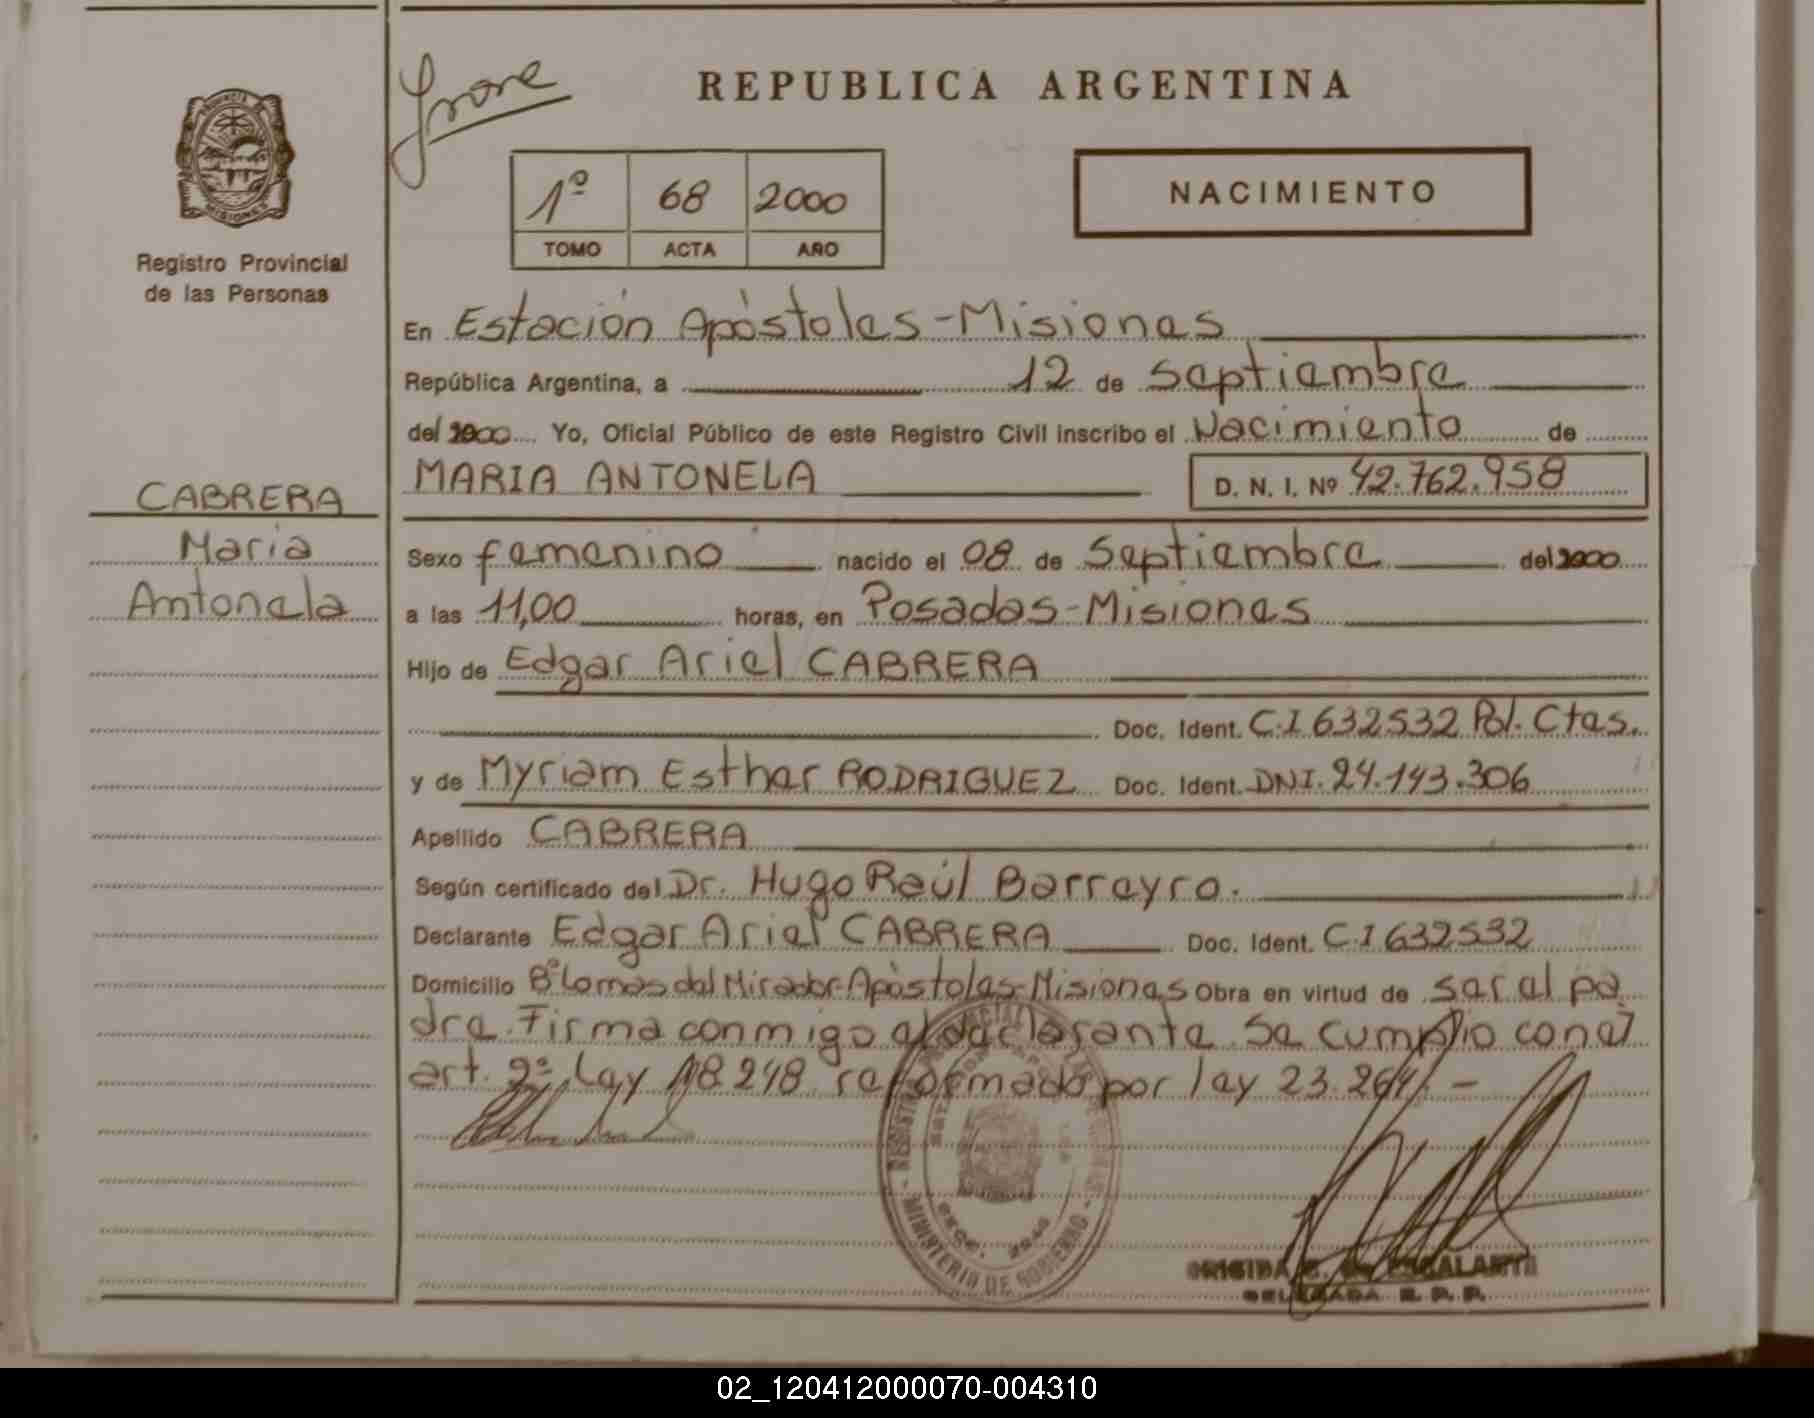 REPUBLICA ARGENTINA
PROVINCIA
MISIONES
Registro Provincial
de las Personas
1º 68 2000
TOMO ACTA AÑO
NACIMIENTO
En Estación Apóstoles-Misiones
República Argentina, a 12 de Septiembre
del 2000 Yo, Oficial Público de este Registro Civil inscribo el Nacimiento de
MARIA ANTONELA D. N. I. Nº 42.762.958
CABRERA
Maria
Antonela
Sexo femenino nacido el 08 de Septiembre del 2000
a las 11,00 horas, en Posadas-Misiones
Hijo de Edgar Ariel CABRERA
Doc. Ident. C.I 632532 Pol. Ctes.
y de Myriam Esther RODRIGUEZ Doc. Ident. DNI. 24.143.306
Apellido CABRERA
Según certificado del Dr. Hugo Raúl Barreyro.
Declarante Edgar Ariel CABRERA Doc. Ident. C.I 632532
Domicilio Bº Lomas del Mirador-Apóstoles-Misiones Obra en virtud de ser el pa
dre. Firma conmigo el declarante. Se cumplio con el
art. 2º Ley 18.248 reformado por ley 23.264. -
MINISTERIO DE GOBIERNO
DELEGADA R. P. P.
02_120412000070-004310